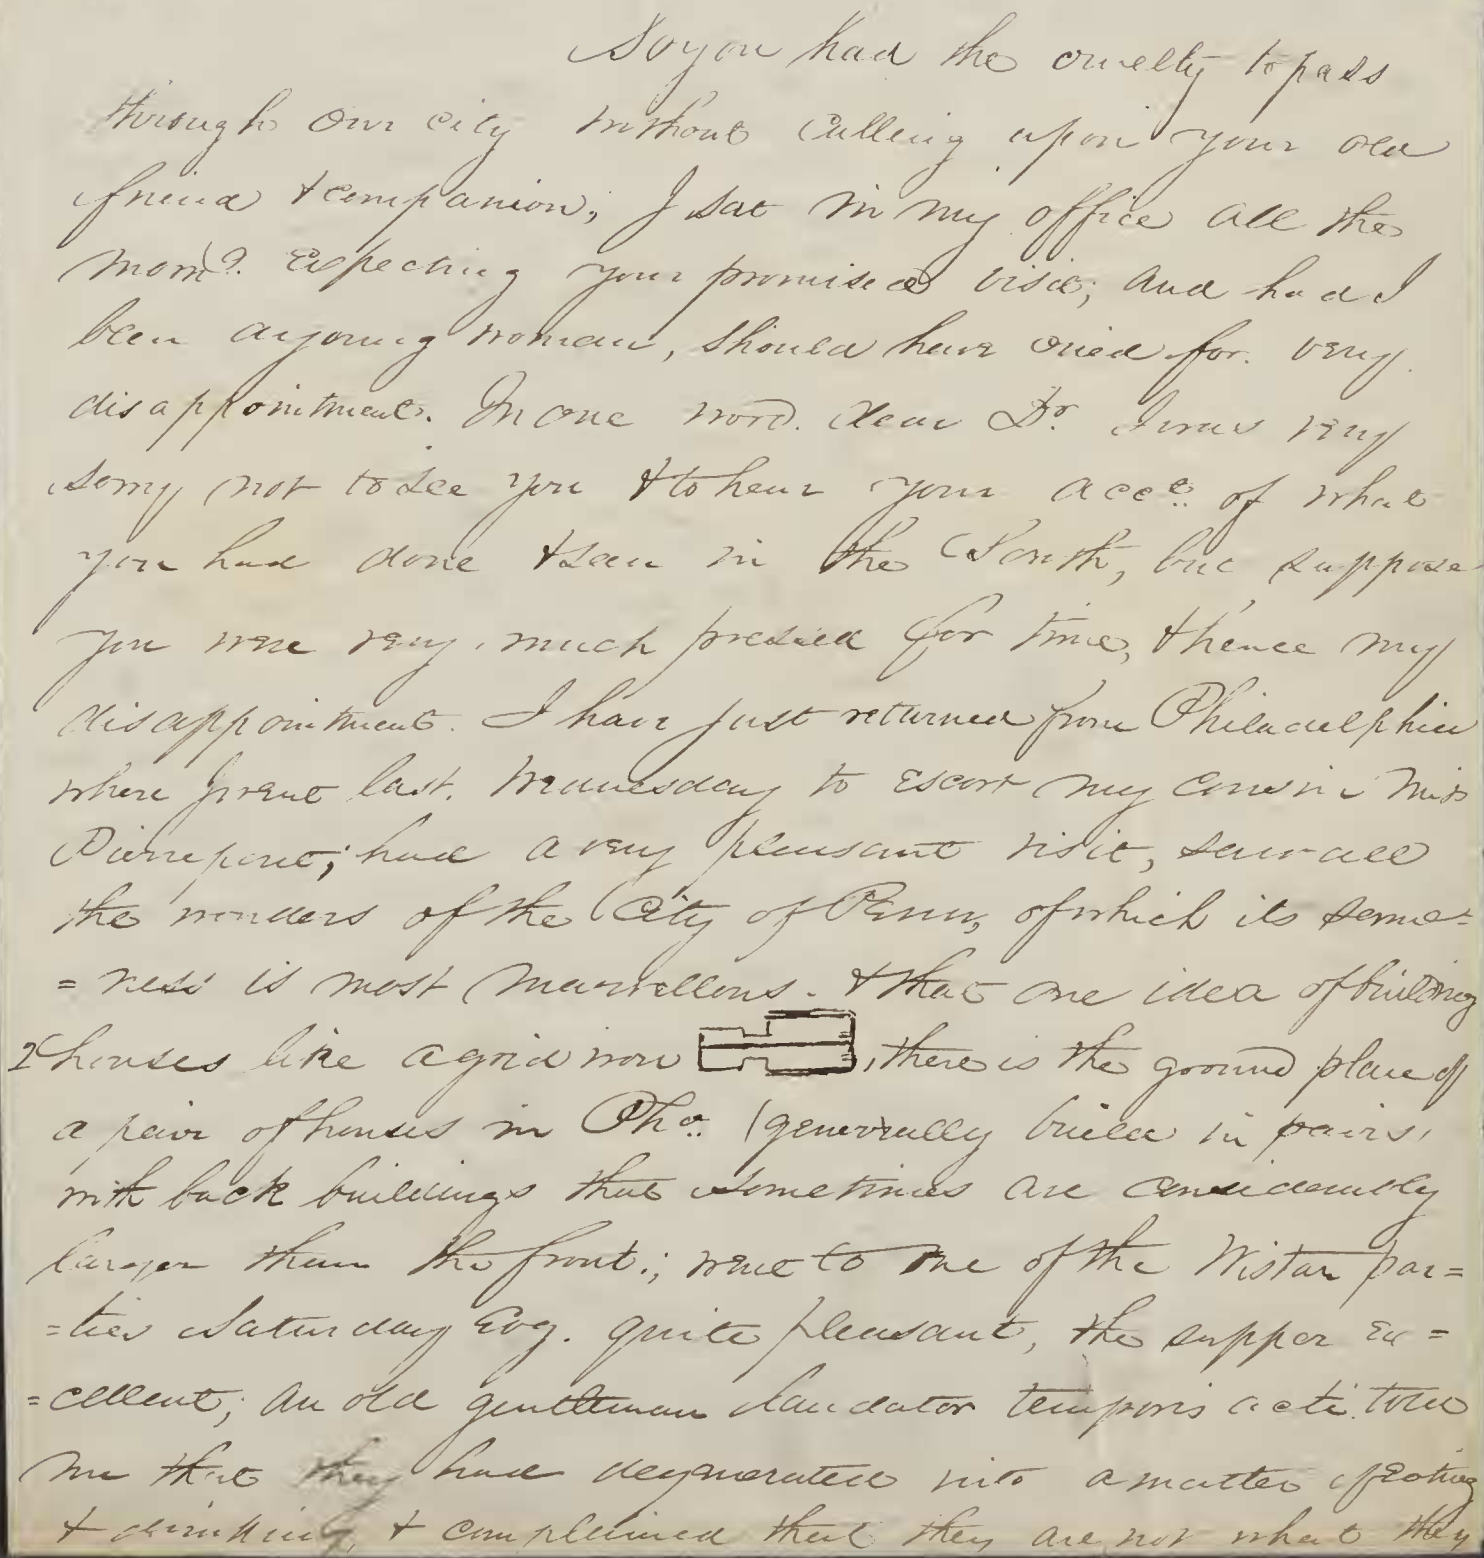 So you had the cruelty to pass
through our city without calling upon your old
friend & companion; I sat in my office all the
morng. expecting your promised visit; and had I
been a young woman, should have cried for very
disappointment. In one word dear Dr. I was very
sorry not to see you & to hear your acct. of what
you had done & seen in the South, but suppose
you were very much pressed for time, & hence my
disappointment. I have just returned from Philadelphia
where I went last Wednesday to escort my cousin Miss
Pierrepont; had a very pleasant visit, saw all
the wonders of the City of Penn, of which its same=
=ness is most marvellous. & that one idea of building
2 houses like a grid iron , there is the ground plan of
a pair of houses in Pha. (generally build in pairs,
with back buildings that sometimes are considerably
larger than the front; went to one of the Wistar par=
=ties Saturday Evg. quite pleasant, the supper ex=
=cellent; an old gentleman laudator temporis acti told
me that they had degenerated into a matter of eating
& drinking, & complained that they are not what they